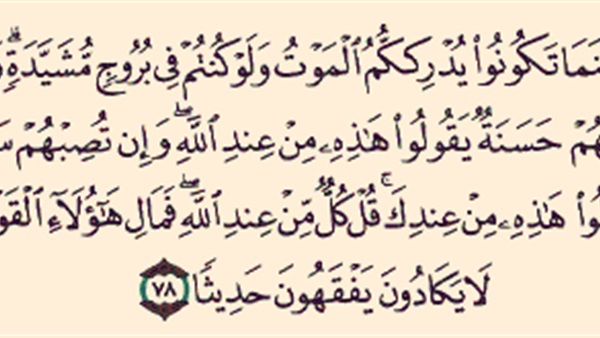 نَمَا تَكُونُوا۟ يُدْرِككُّمُ ٱلْمَوْتُ وَلَوْ كُنتُمْ فِى بُرُوجٍ مُّشَيَّدَةٍۗ وَ
هُمْ حَسَنَةٌ يَقُولُوا۟ هَٰذِهِۦ مِنْ عِندِ ٱللَّهِۖ وَإِن تُصِبْهُمْ سَ
لُوا۟ هَٰذِهِۦ مِنْ عِندِكَۚ قُلْ كُلٌّ مِّنْ عِندِ ٱللَّهِۖ فَمَالِ هَٰٓؤُلَآءِ ٱلْقَوْ
لَا يَكَادُونَ يَفْقَهُونَ حَدِيثًا ٧٨